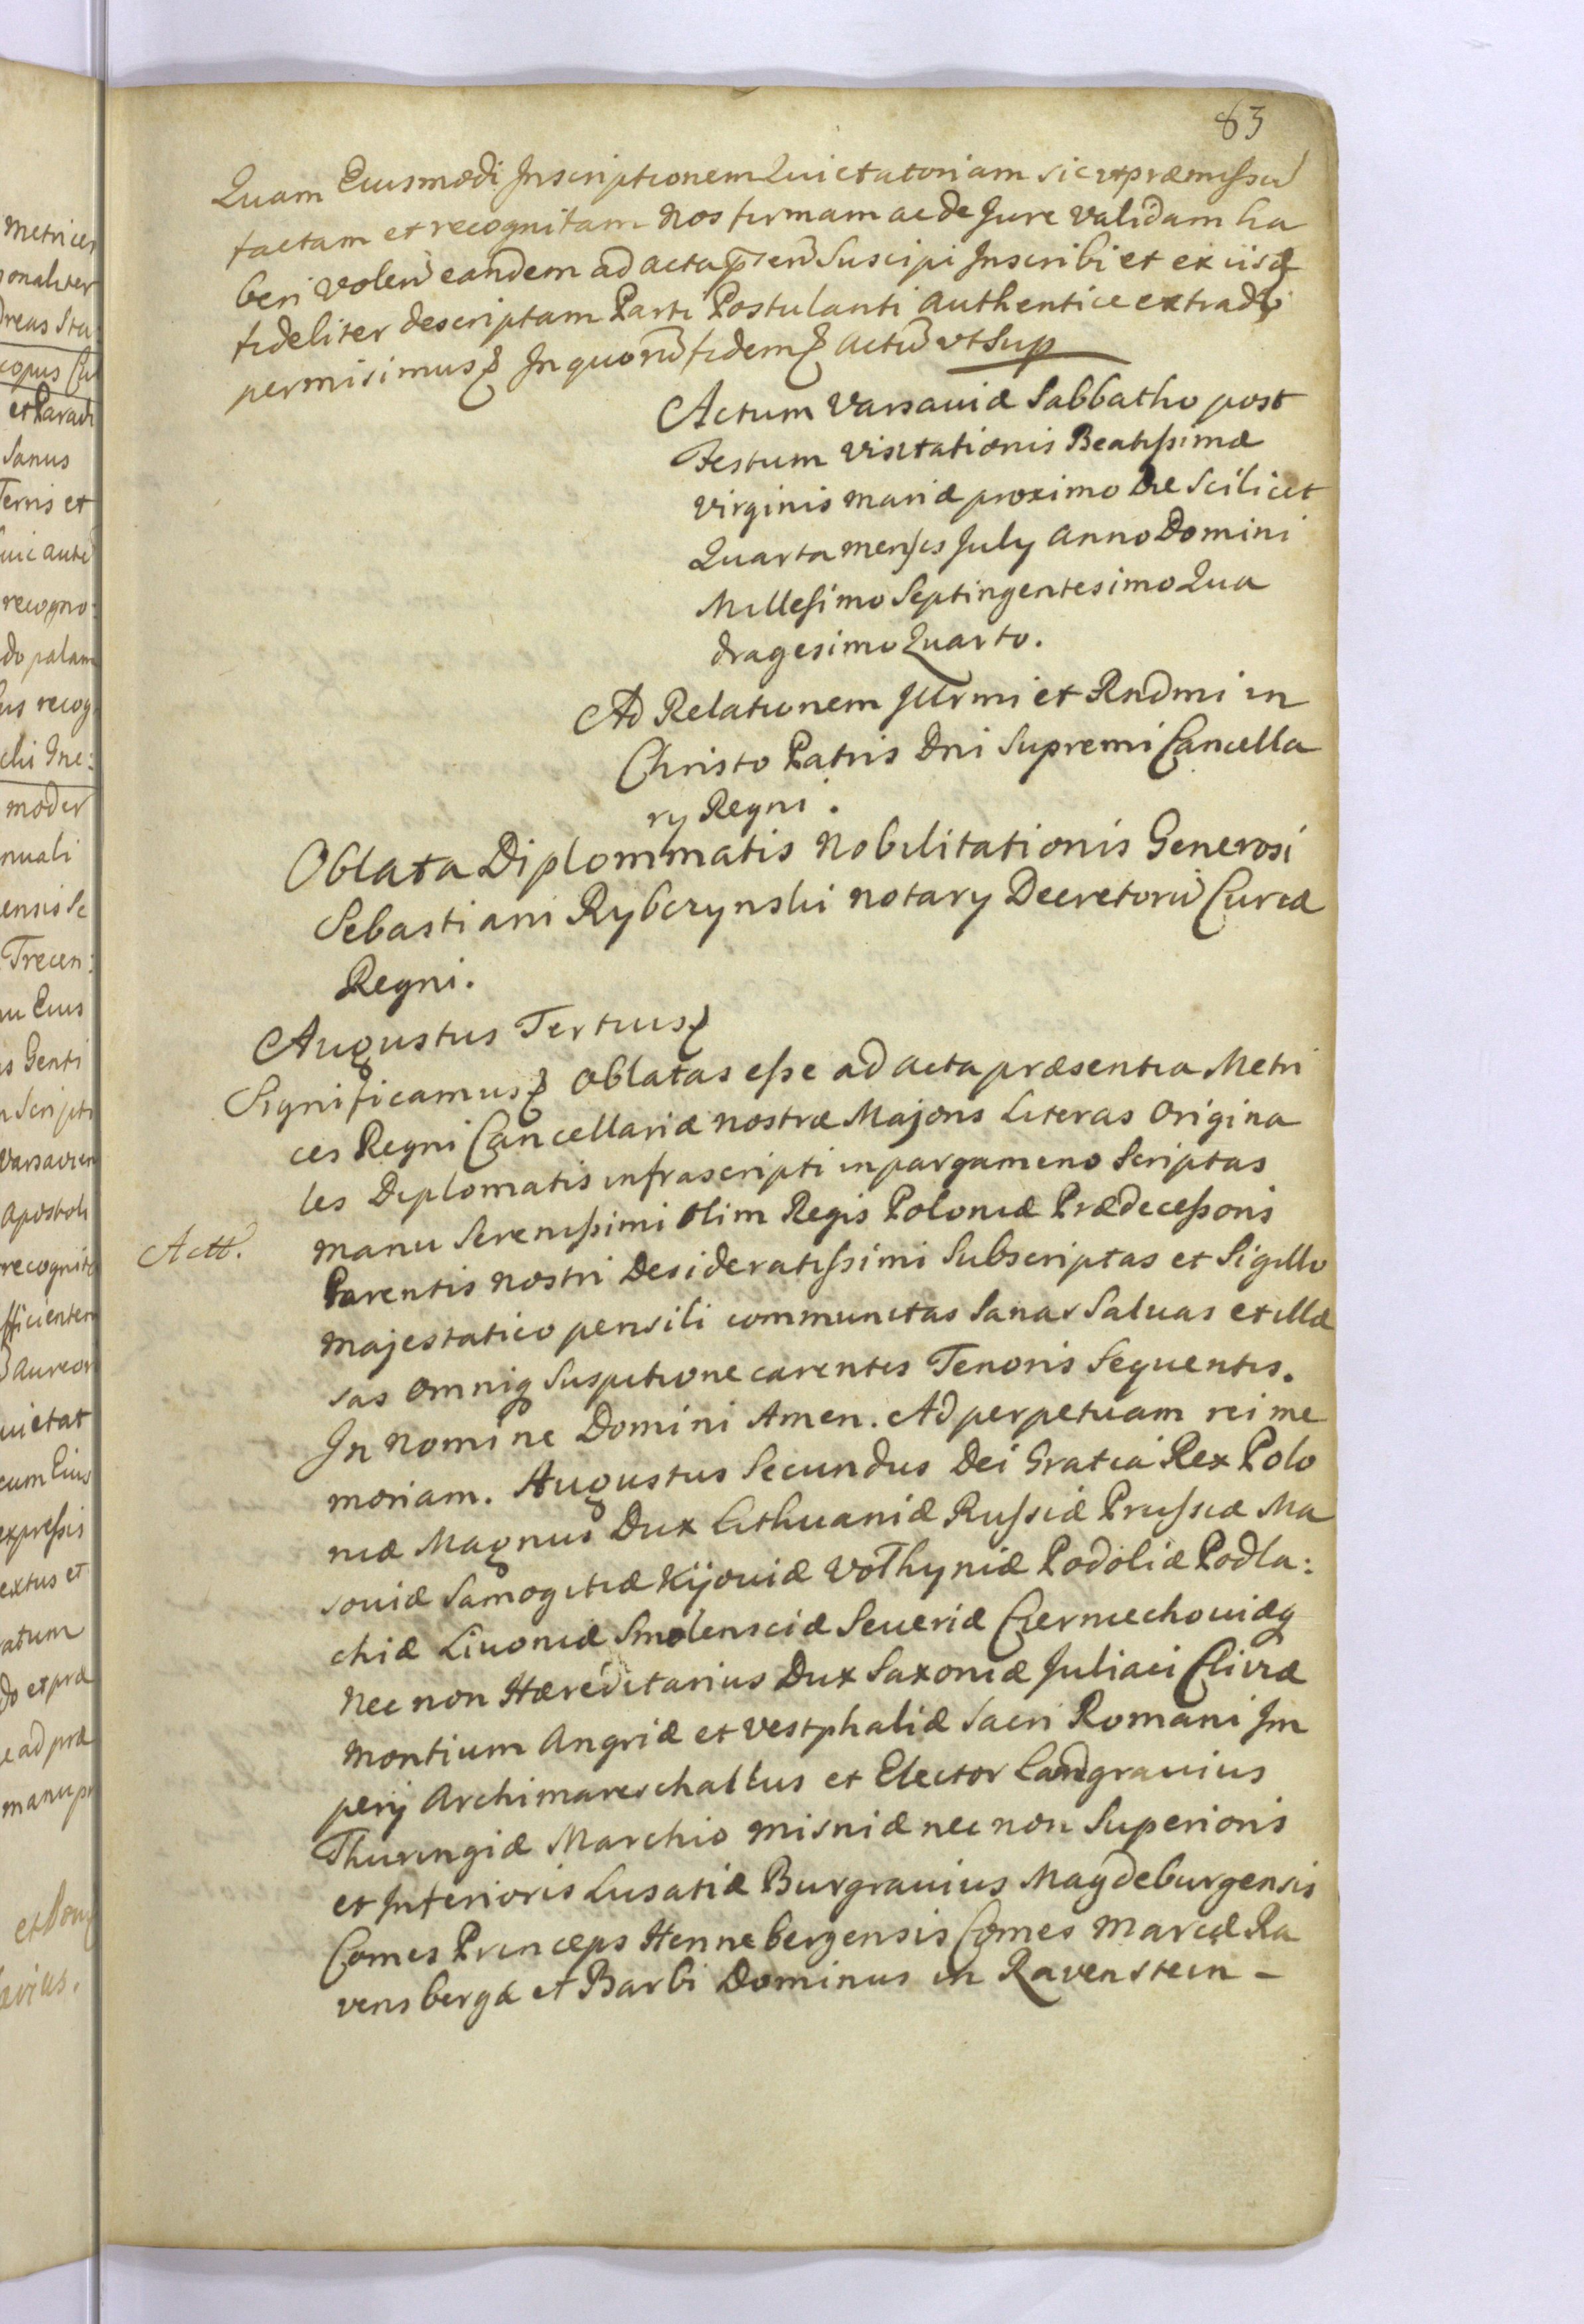 83
Quam Eiusmodi Inscriptionem Quietatoriam sic ut præmissũ
factam et recognitam Nos firmam ac de Jure validam ha
beri volen̄ eandem ad acta p̄sen̄ Suscipi Inscribi et ex iisd
fideliter descriptam Parti Postulanti authentice extradi
permisimus In quorũ fidem Actũ ut Sup
Actum Varsaviæ Sabbatho post
Festum Visitationis Beatissimæ
Virginis Mariæ proximo Die Scilicet
Quarta mensis July Anno Domini
Millesimo Septingentesimo Qua
dragesimo Quarto.
Ad Relationem Illrmi et Rndmi in
Christo Patris Dni Supremi Cancella
ry Regni.
Oblata Diplommatis Nobilitationis Generosi
Sebastiani Rybczynski Notary Decretorũ Curiæ
Regni.
Augustus Tertius
Significamus Oblatas esse ad acta præsentia Metri
ces Regni Cancellariæ nostræ Majoris Literas Origina
les Diplomatis infrascripti in pargameno Scriptas
Actt.
manu Serenissimi olim Regis Poloniæ Prædecessoris
Parentis nostri Desideratissimi Subscriptas et Sigillo
Majestatico pensili communitas Sanas Salvas et illæ
sas omniq Suspitione carentes Tenoris Sequentis.
In Nomine Domini Amen. Ad perpetuam rei me
moriam. Augustus Secundus Dei Gratia Rex Polo
niæ Magnus Dux Lithuaniæ Russiæ Prussiæ Ma
soviæ Samogitiæ Kijoviæ Volhyniæ Podoliæ Podla:
chiæ Livoniæ Smolensciæ Severiæ Czerniechoviæq
Nec non Hæreditarius Dux Saxoniæ Juliaci Cliviæ
Montium Angriæ et Vestphaliæ Sacri Romani Im
perij Archimareschallus et Elector Landgravius
Thuringiæ Marchio Misniæ nec non Superioris
et Inferioris Lusatiæ Burgravius Magdeburgensis
Comes Princeps Hennebergensis Comes Marcæ Ra
vensbergæ et Barbi Dominus in Ravenstein -